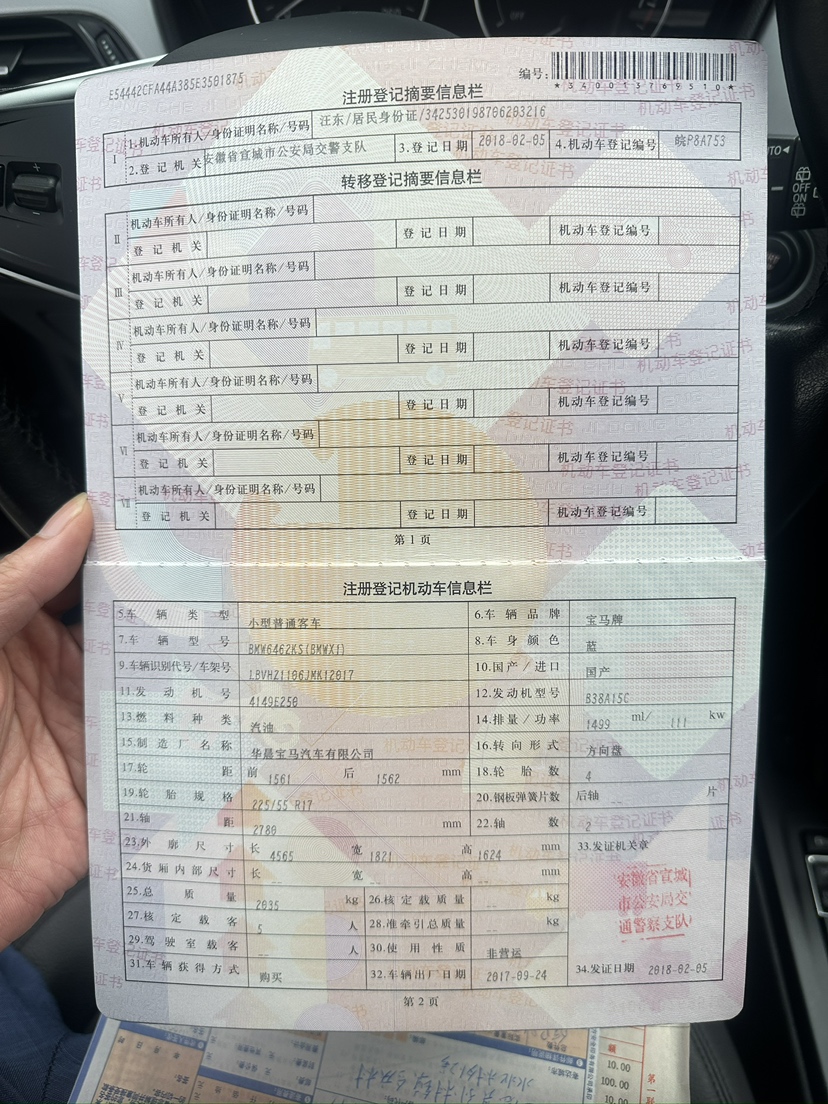 E54442CFA44A385E3501875
编号:
*340013769510*
注册登记摘要信息栏
Ⅰ 1.机动车所有人/身份证明名称/号码 汪东/居民身份证/342530198706203216
2.登记机关 安徽省宣城市公安局交警支队 3.登记日期 2018-02-05 4.机动车登记编号 皖P8A753
转移登记摘要信息栏
Ⅱ 机动车所有人/身份证明名称/号码
登记机关 登记日期 机动车登记编号
Ⅲ 机动车所有人/身份证明名称/号码
登记机关 登记日期 机动车登记编号
Ⅳ 机动车所有人/身份证明名称/号码
登记机关 登记日期 机动车登记编号
Ⅴ 机动车所有人/身份证明名称/号码
登记机关 登记日期 机动车登记编号
Ⅵ 机动车所有人/身份证明名称/号码
登记机关 登记日期 机动车登记编号
Ⅶ 机动车所有人/身份证明名称/号码
登记机关 登记日期 机动车登记编号
第1页
注册登记机动车信息栏
5.车辆类型 小型普通客车 6.车辆品牌 宝马牌
7.车辆型号 BMW6462KS(BMWX1) 8.车身颜色 蓝
9.车辆识别代号/车架号 LBVHZ1106JMK12017 10.国产/进口 国产
11.发动机号 4149E250 12.发动机型号 B38A15C
13.燃料种类 汽油 14.排量/功率 1499 ml/ 111 kw
15.制造厂名称 华晨宝马汽车有限公司 16.转向形式 方向盘
17.轮距 前 1561 后 1562 mm 18.轮胎数 4
19.轮胎规格 225/55 R17 20.钢板弹簧片数 后轴 -- 片
21.轴距 2780 mm 22.轴数 2
23.外廓尺寸 长 4565 宽 1821 高 1624 mm 33.发证机关章
24.货厢内部尺寸 长 -- 宽 -- 高 -- mm
安徽省宣城
市公安局交
通警察支队
25.总质量 2035 kg 26.核定载质量 -- kg
27.核定载客 5 人 28.准牵引总质量 -- kg
29.驾驶室载客 -- 人 30.使用性质 非营运
31.车辆获得方式 购买 32.车辆出厂日期 2017-09-24 34.发证日期 2018-02-05
第2页
10.00
100.00
10.00
OFF
ON